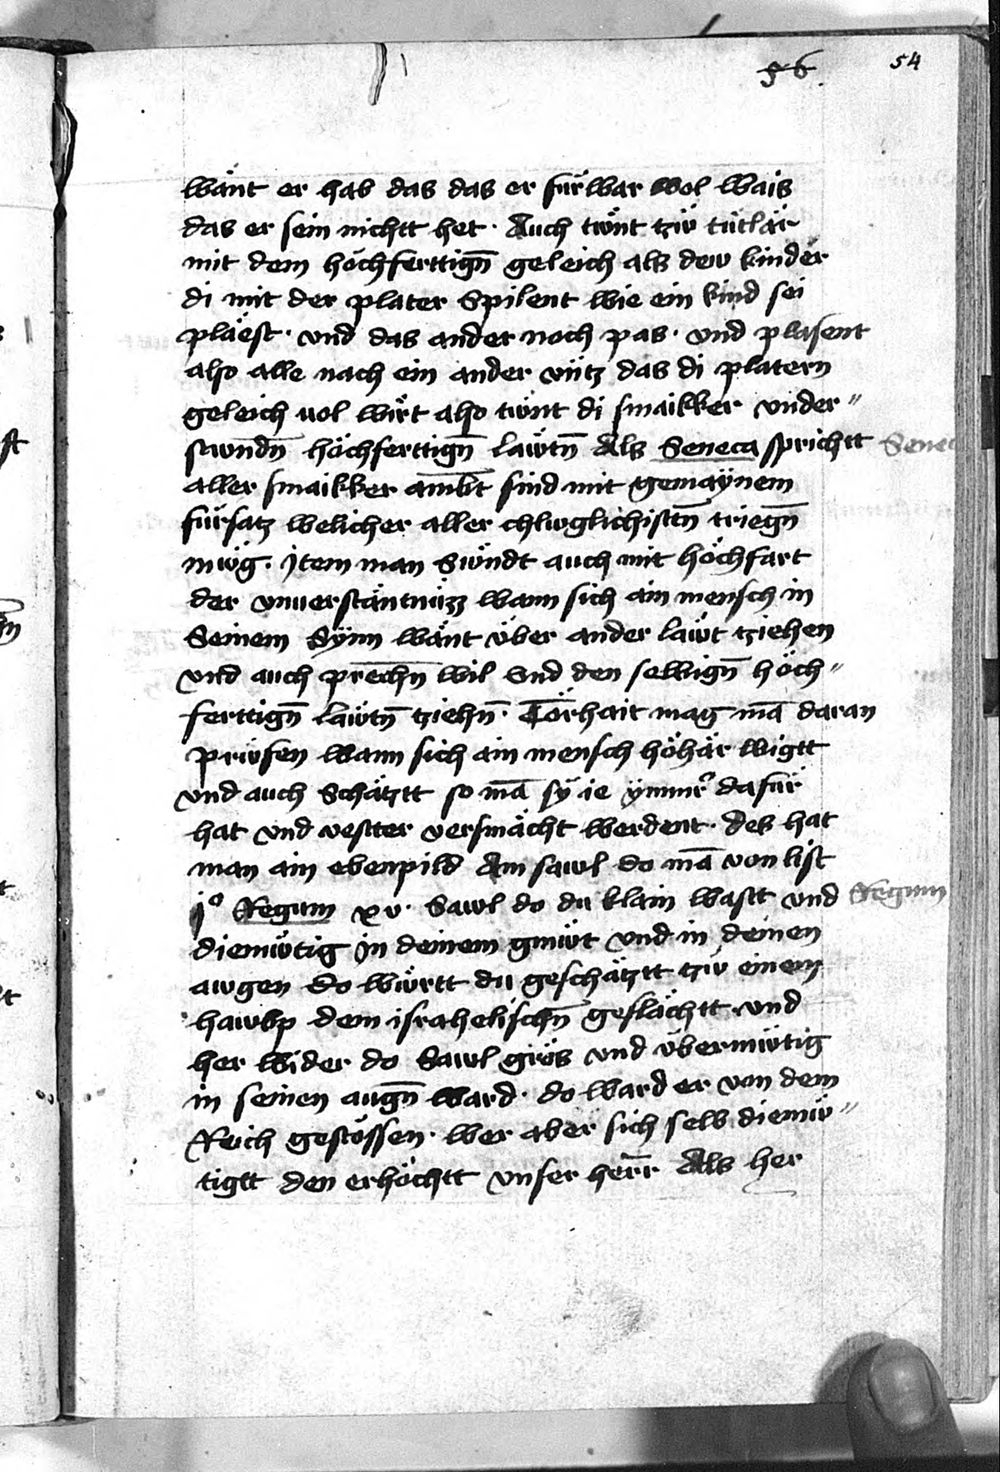 56. 54
wänt er hab das das er fürwar wol wais
das er sein nichtt het · Auch tuont tzw tütlär
mit dem höchferttign̄ geleich als dew kinder
di mit der plater spilent wie ein kind sei
pläest · vnd das ander noch pas · vnd plasent
also alle nach ein ander vntz das di platern
geleich uol wirt also tuont di smaikker vnder〃
stvndn̄ höchferttign̄ lawtn̄ Als Seneca sprichtt
Senec
aller smaikker ambt sind mit gemaÿnem
fürsatz welicher aller chlwglichistn̄ triegn̄
müg · Jtem man Swndt auch mit höchfart
der vnuerstäntnüzz wann sich ain mensch in
Seinem Sÿnn wänt über ander lawt tziehen
vnd auch prechn̄ wil vnd den selbign̄ höch〃
ferttign̄ lawtn̄ tziehn̄ · Törhait mag mā daran
prüfen wann sich ain mensch höhär wigtt
vnd auch Schätztt so mā sÿ ie ÿmmr dafür
hat vnd vestter versmächt werdent · des hat
man ain ebenpild Am sawl do mā von list
jo Regum xv · Sawl do du klain wastt vnd
Regum
diemütig jn deinem gmüt vnd in deinen
awgen do württ du geschätztt tzw einem
hawbp dem israhelischn̄ geslächtt · vnd
her wider do Sawl grös vnd übermütig
in seinen augn̄ ward · do ward er von dem
Reich gestössen · wer aber sich selb diemü〃
tigtt den erhöchtt vnser herr Als her